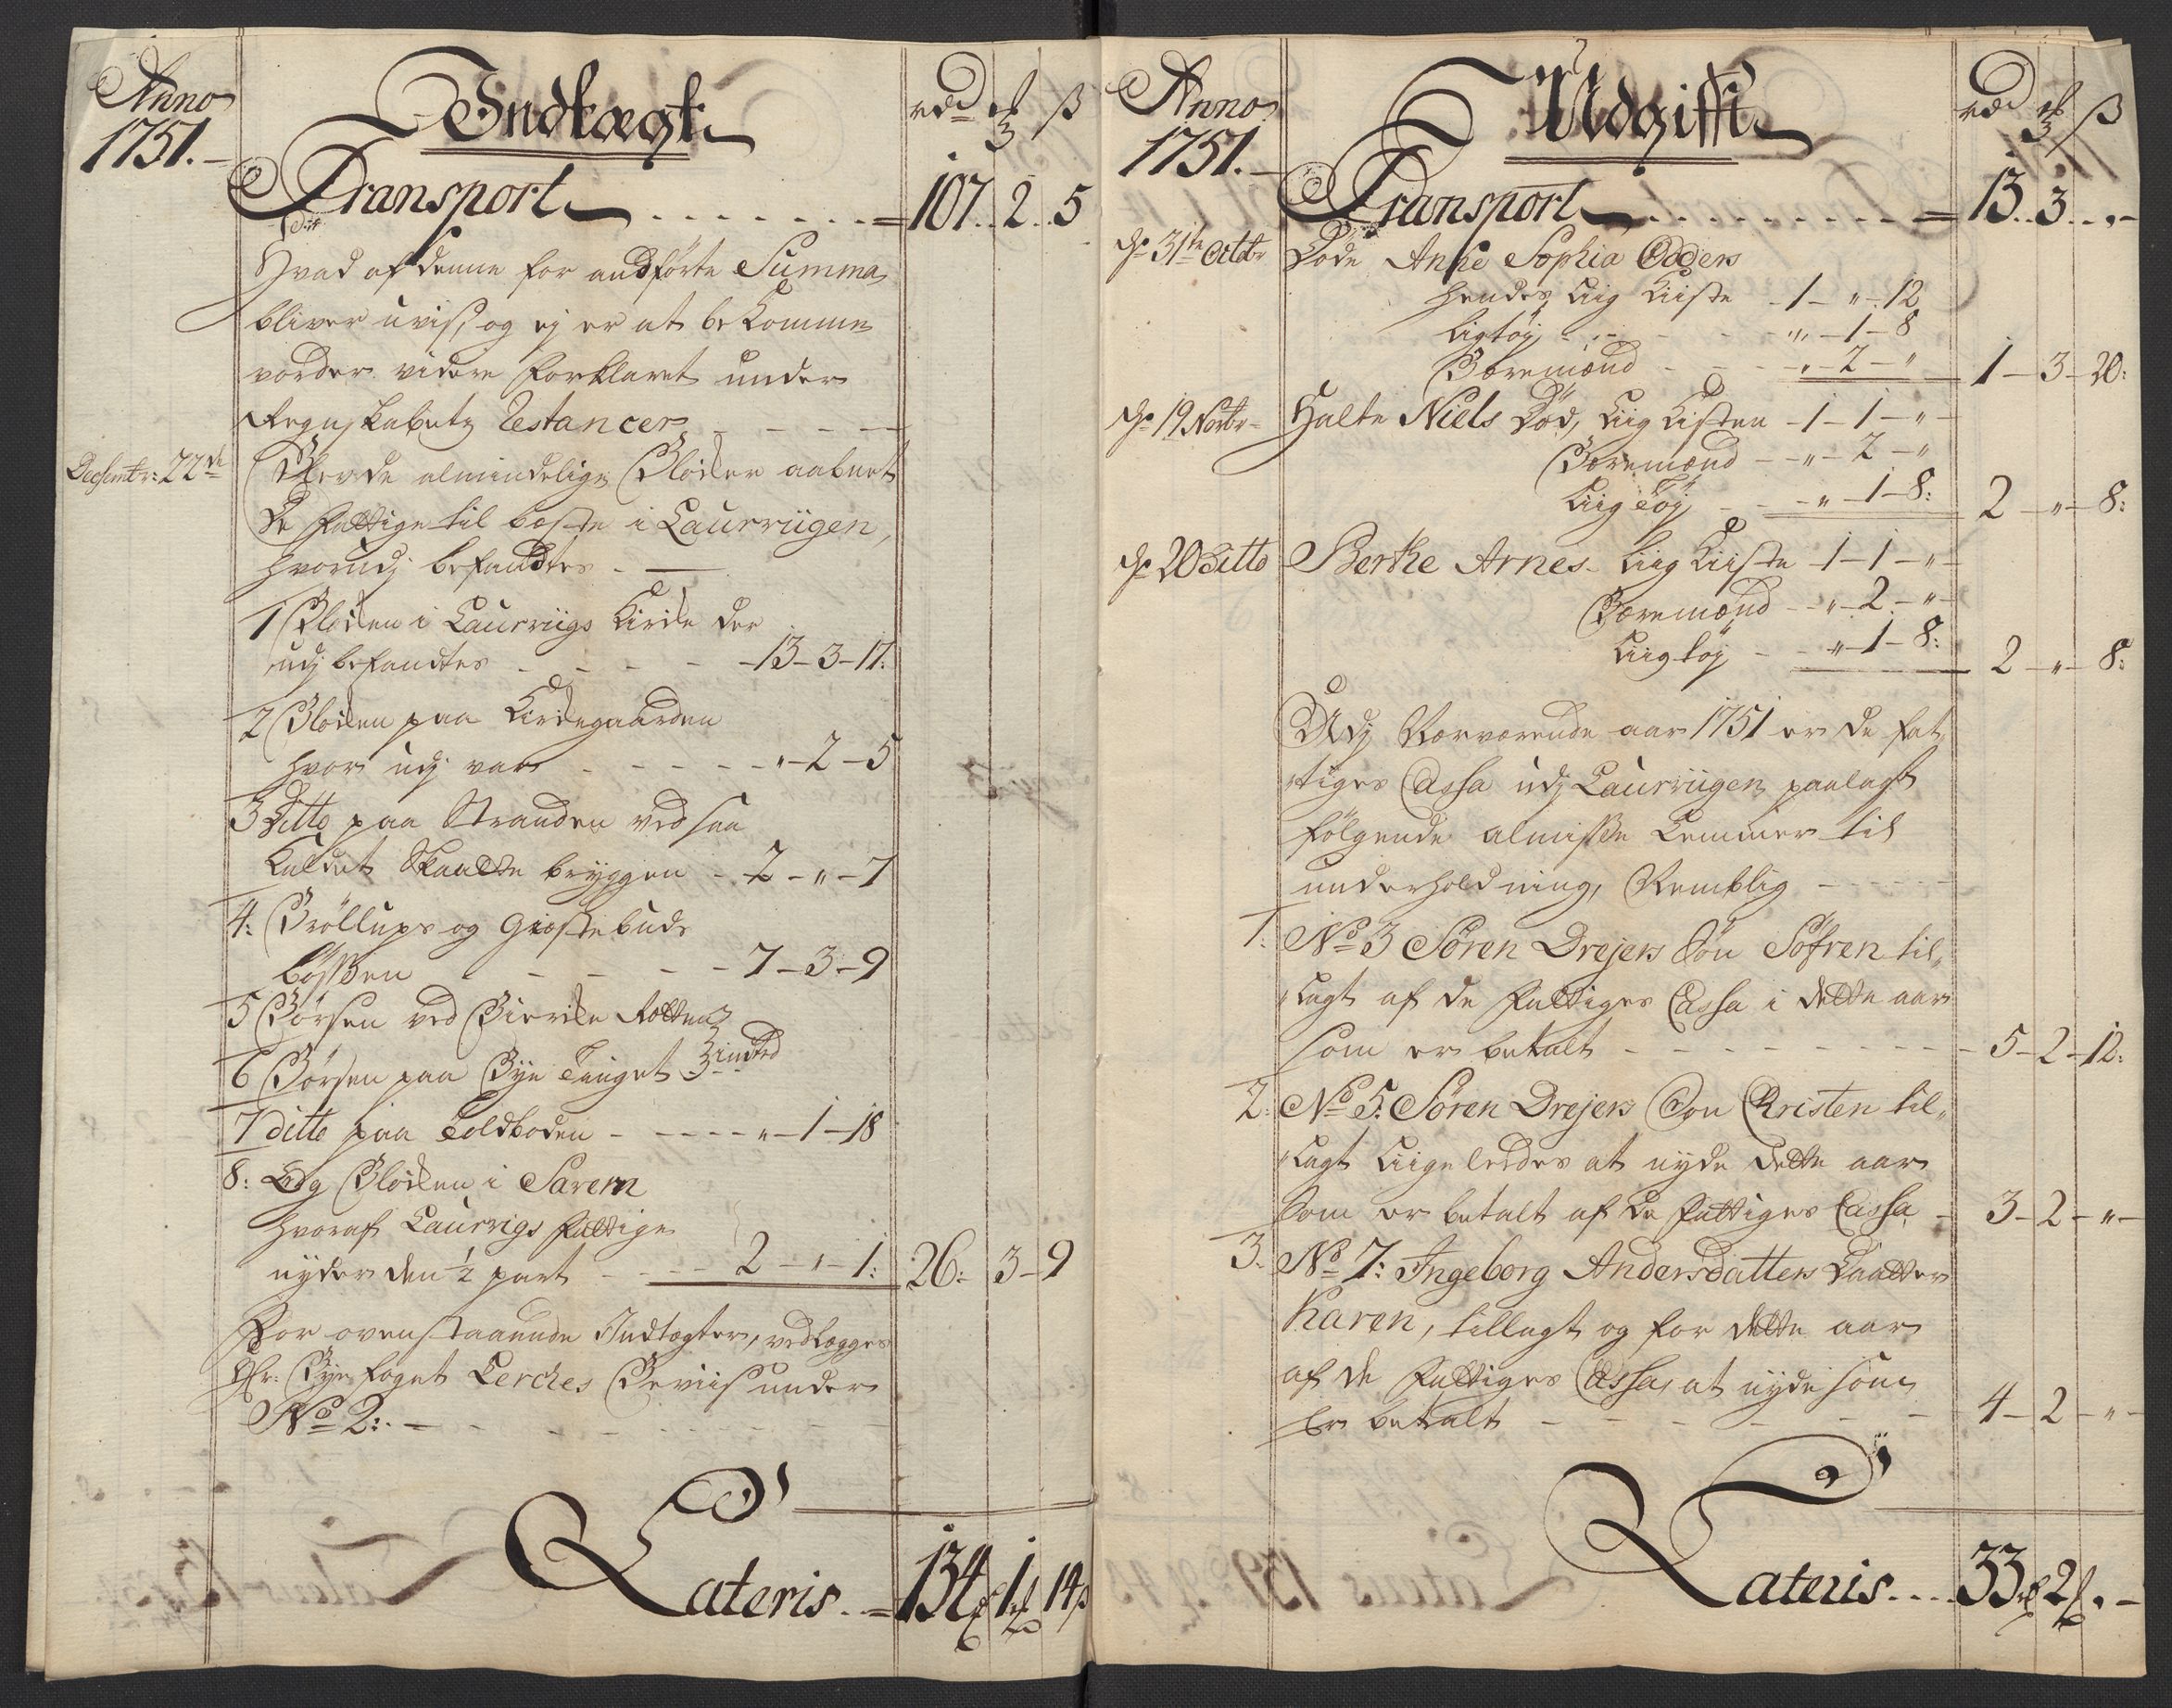 Anno
1751.
Indtægt
rdr ort ß
Transport - - - - - - = 107 . 2 . 5
Hvad af denne for andførte Summa
bliver uvis, og ej er at bekomme
vorder videre forklaret under
Regnskabetz Restancer - - - -
Decembr: 22de Blev de almindelige Blokker aabnet
De Fattige til bæste i Laurviigen,
hvorudj befandtes - —
1 Blokken i Laurviigs Kirke der
udj befandtes - - - - - 13 - 3 - 17:
2 Blokken paa Kirkegaarden
hvor udj var - - - - - " - 2 - 5
3 Ditto paa Stranden ved saa
kaldet Skaatte bryggen - 2 - " - 7
4: Bröllups og Giæstebuds
bössen - - - - - 7 - 3 - 9
5 Börsen ved
6 Börsen paa Bye Tinget intted
7 ditto paa Toldboden - - - - " - 1 - 18
8: Og Blokken i
hvoraf Laurvigs Fattige
nyder den ½ part - - - 2 - " - 1: 26: 3 - 9
For ovenstaaende Indtægter, vedlægges
Hr: Bye foget Lerches Beviis under
No 2: - - - - - -
Lateris . = 134 rd 1 ort 14 ß
Anno
1751.
Udgifft
rdr ort ß
Transport - - - - - - = 13 . 3 . " -
d: 31te Octbr Döde Anne Sophia Odders
hendes Liig Kiiste - 1 - " - 12
Ligtöÿ - - - - " - 1 - 8
Bæremænd - - - " - 2 - " 1 - 3 - 20:
d: 19 Novbr - Halte Niels Död, Liig Kisten - 1 - 1 - " -
Bæremænd - - " - 2 - "
Liig Töÿ - - - " - 1 - 8: 2 - " - 8:
d: 20 Ditto Berthe Arnes - Liig Kiiste - 1 - 1 - " -
Bæremænd - - " - 2 - " -
Liigtöÿ - - " - 1 - 8: 2 - " - 8:
Udj Nærværende aar 1751 er de fat
tiges Cassa udj Laurviigen paalagt
fölgende almisse Lemmer til
underholdning, Nemblig - - - -
1: No 3 Sören Drejers Sön Söfren til,,
,,lagt af de Fattiges Cassa i dette aar
som er betalt - - - - - - - - 5 - 2 - 12:
2: No 5: Sören Drejers Sön Kristen til,,
,,lagt Liigeleedes at nyde dette aar
som er betalt af de Fattiges Cassa - 3 - 2 - " -
3: No 7: Ingeborg Andersdatters Daatter
Karen, tillagt og for dette aar
af de Fattiges Cassa, at nyde som
Er betalt - - - - - - - 4 - 2 - " -
Lateris . . . . 33 rd 2 ort " -